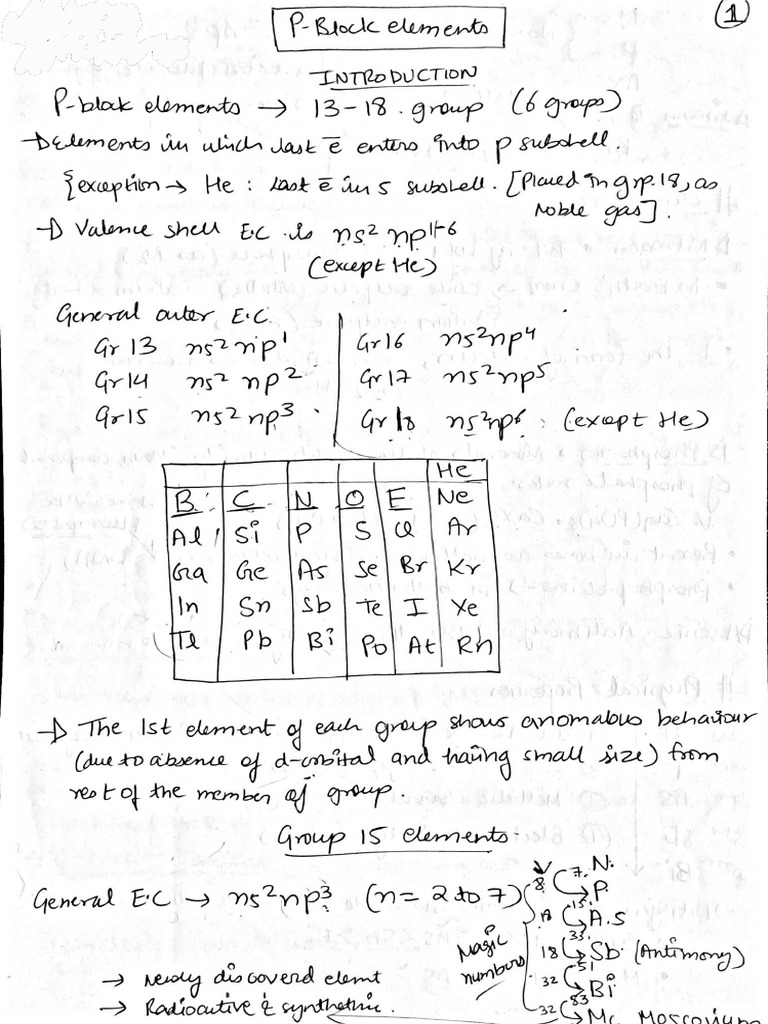 ①
P-Block elements
INTRODUCTION
P-block elements → 13-18. group (6 groups)
→ Elements in which last e̅ enters into p subshell.
{exception → He : last e̅ in s subshell. [Placed in grp.18, as
noble gas].
→ Valence shell EC is ns² np¹⁻⁶
(except He)
General outer E.C.
Gr 13 ns² np¹
Gr 14 ns² np²
Gr 15 ns² np³
Gr 16 ns² np⁴
Gr 17 ns² np⁵
Gr 18 ns² np⁶ : (except He)
He
B C N O F Ne
Al Si P S Cl Ar
Ga Ge As Se Br Kr
In Sn Sb Te I Xe
Tl Pb Bi Po At Rn
→ The 1st element of each group shows anomalous behaviour
(due to absence of d-orbital and having small size) from
rest of the member of group.
Group 15 elements
General E.C → ns² np³ (n = 2 to 7)
Magic
numbers
8 7. N.
18 15. P.
18 33. A.S
32 51 Sb. (Antimony)
32 83 Bi
Mc Moscovium
→ Newly discoverd elemt
→ Radioactive & synthetic.